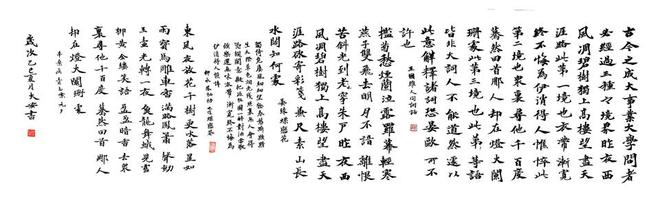 古今之成大事業大學問者
必經過三種之境界昨夜西
風凋碧樹獨上高樓望盡天
涯路此第一境也衣帶漸寬
終不悔為伊消得人憔悴此
第二境也眾裏尋他千百度
驀然回首那人却在燈火闌
珊處此第三境也此等語
皆非大詞人不能道然遽以
此意解釋諸詞恐晏歐所不
許也
王國維人間詞話
檻菊愁煙蘭泣露羅幕輕寒
燕子雙飛去明月不諳離恨
苦斜光到曉穿朱戶昨夜西
風凋碧樹獨上高樓望盡天
涯路欲寄彩箋兼尺素山長
水闊知何處 晏殊蝶戀花
獨倚危樓風細細望極春愁黯黯
生天際草色煙光殘照裏無言誰會
憑欄意擬把疏狂圖一醉對酒當歌
強樂還無味衣帶漸寬終不悔為
伊消得人憔悴
東風夜放花千樹更吹落星如
雨寶馬雕車香滿路鳳簫聲動
玉壺光轉一夜魚龍舞蛾兒雪
柳黃金縷笑語盈盈暗香去眾
裏尋他千百度驀然回首那人
却在燈火闌珊處
辛棄疾青玉案元夕
歲次乙巳夏月大安書